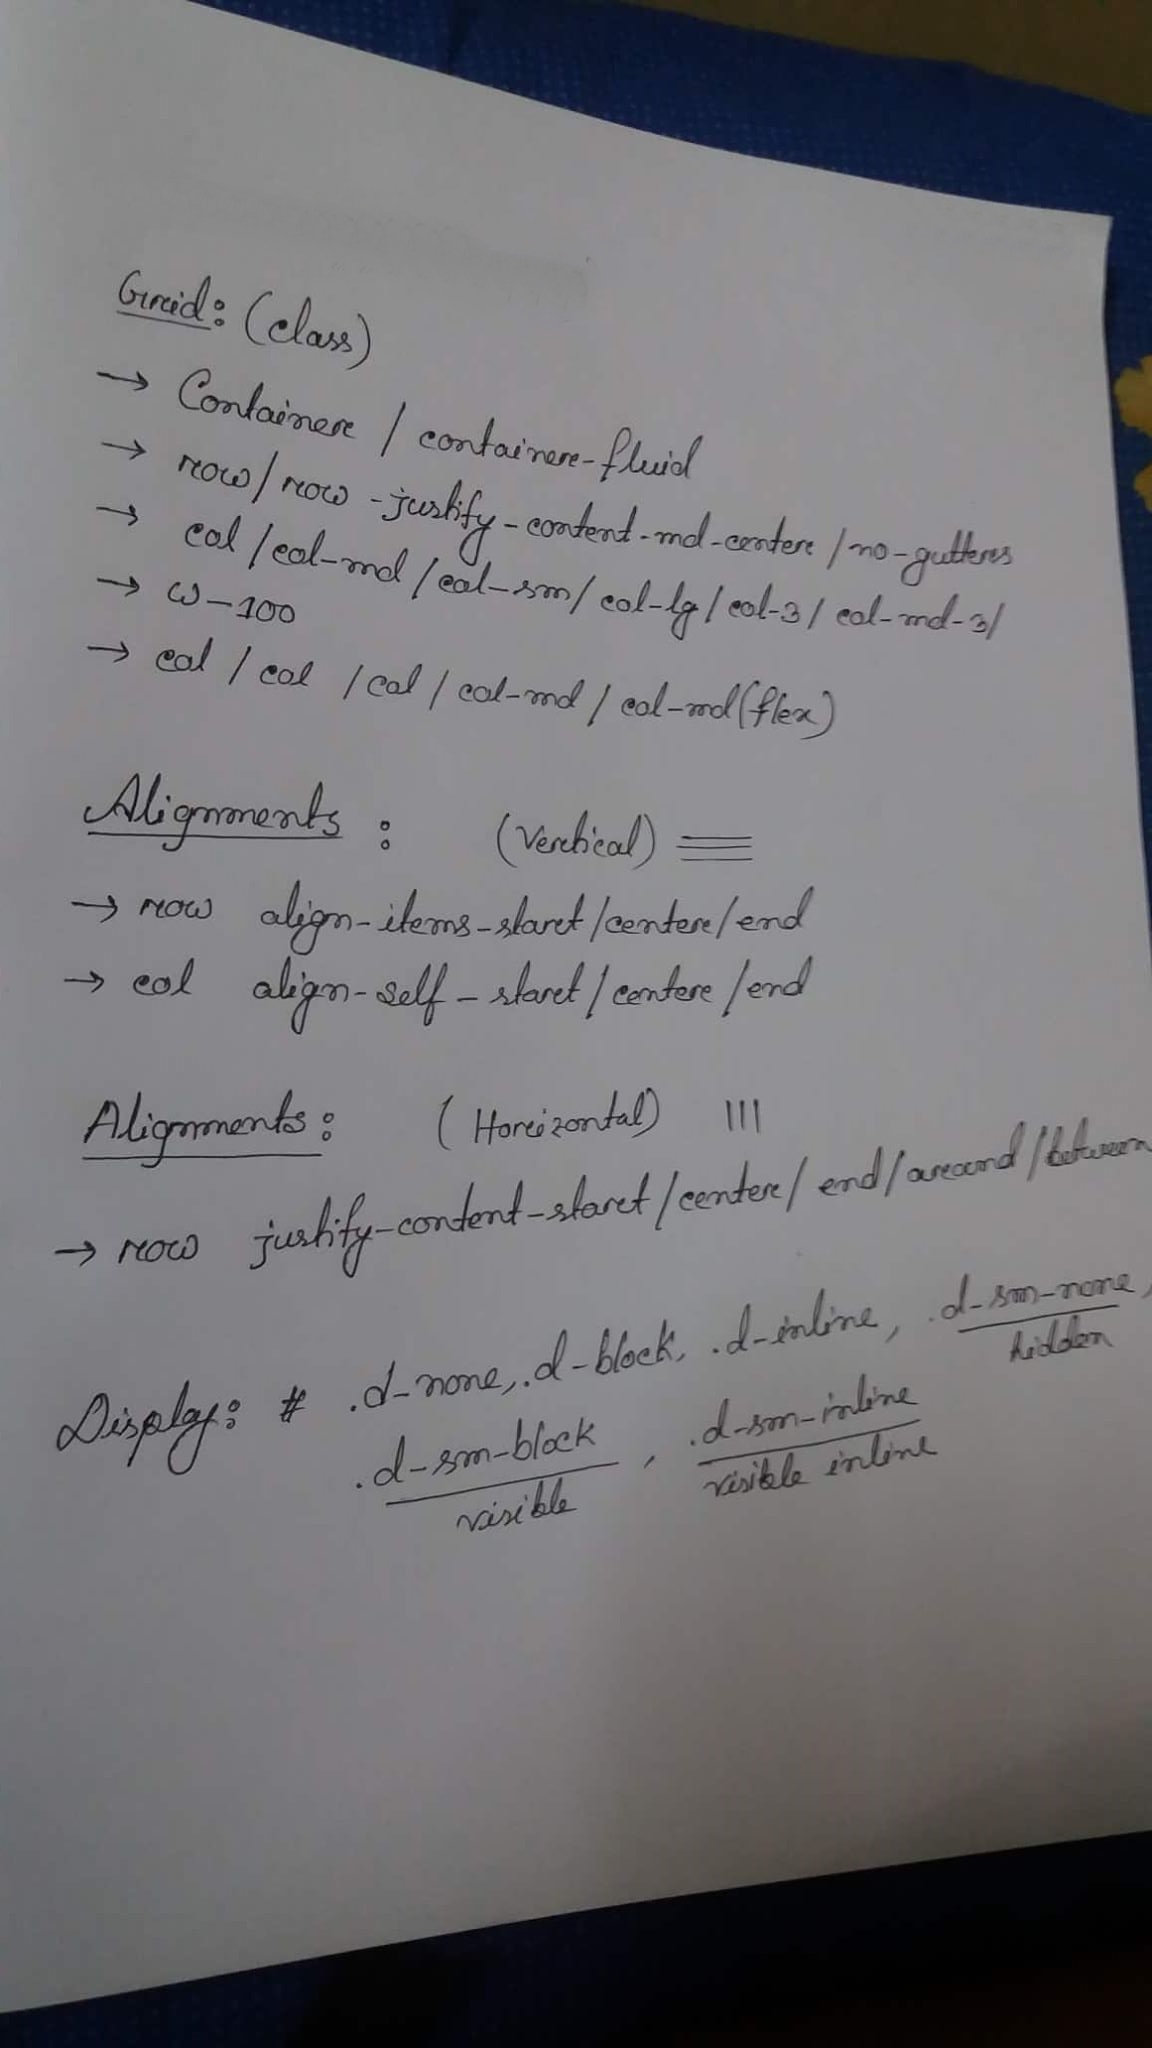 Grid: (class)
→ Container / container-fluid
→ row/row-justify-content-md-center/no-gutters
→ col/col-md/col-sm/col-lg/col-3/col-md-3/
→ w-100
→ col / col / col / col-md / col-md(flex)
Alignments : (Vertical)
→ row align-items-start/center/end
→ col align-self-start/center/end
Alignments: (Horizontal)
→ row justify-content-start/center/end/around/between
Display: # .d-none, .d-block, .d-inline, .d-sm-none,
hidden
.d-sm-block , .d-sm-inline
visible visible inline